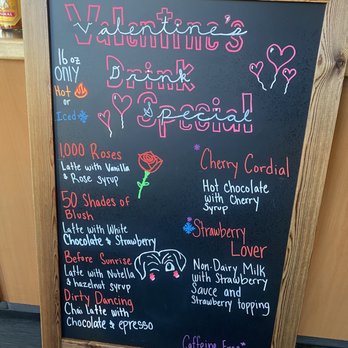 Valentine's
Drink
Special
16 oz
ONLY
Hot
or
Iced
1,000 Roses
Latte with Vanilla
& Rose syrup
50 Shades of
Blush
Latte with White
Chocolate & Strawberry
Before Sunrise
Latte with Nutella
& hazelnut syrup
Dirty Dancing
Chai Latte with
Chocolate & epresso
Cherry Cordial
Hot Chocolate
with Cherry
Syrup
Strawberry
Lover
Non-Dairy Milk
with Strawberry
Sauce and
Strawberry topping
Caffeine Free